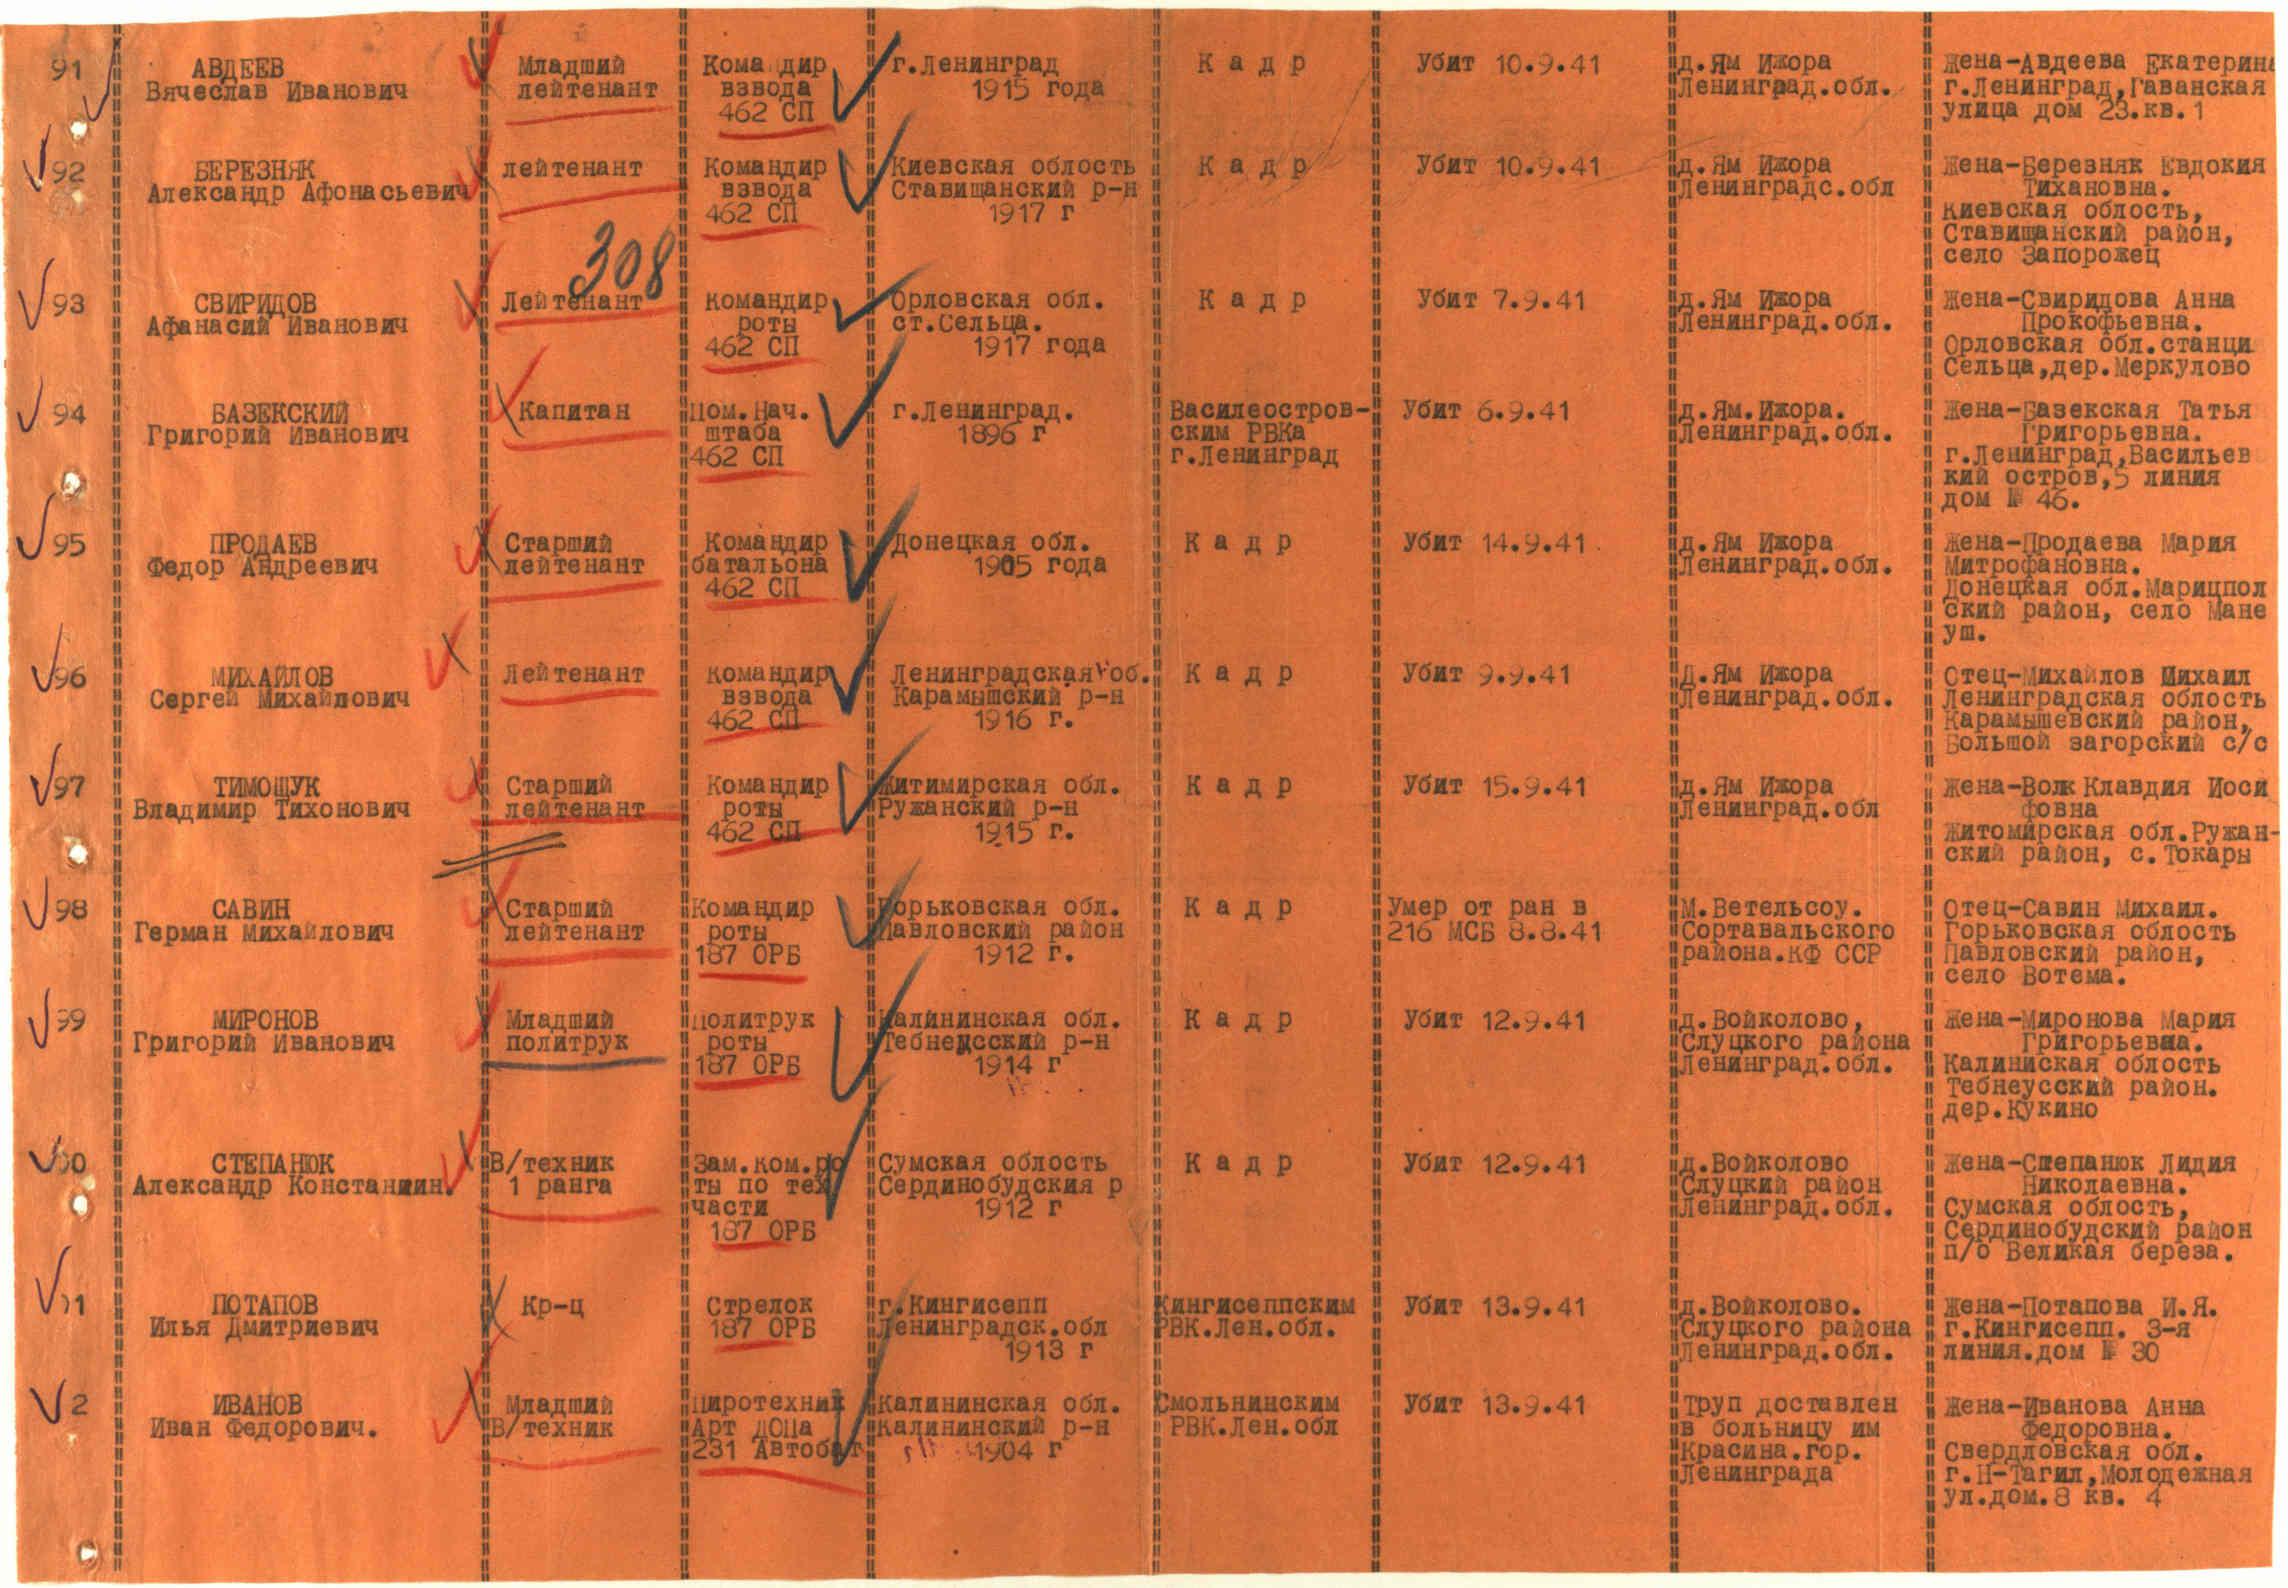 91
АВДЕЕВ
Вячеслав Иванович
Младший
лейтенант
Командир
взвода
462 СП
г.Ленинград
1915 года
К а д р
Убит 10.9.41
д.Ям Ижора
Ленинград.обл.
Жена-Авдеева Екатерина
г.Ленинград,Гаванская
улица дом 23.кв.1
92
БЕРЕЗНЯК
Александр Афонасьевич
лейтенант
Командир
взвода
462 СП
Киевская облость
Ставищанский р-н
1917 г
К а д р
Убит 10.9.41
д.Ям Ижора
Ленинградс.обл
Жена-Березняк Евдокия
Тихановна.
Киевская облость,
Ставищанский район,
село Запорожец
308
93
СВИРИДОВ
Афанасий Иванович
Лейтенант
Командир
роты
462 СП
Орловская обл.
ст.Сельца.
1917 года
К а д р
Убит 7.9.41
д.Ям Ижора
Ленинград.обл.
Жена-Свиридова Анна
Прокофьевна.
Орловская обл.станци
Сельца,дер.Меркулово
94
БАЗЕКСКИЙ
Григорий Иванович
Капитан
Пом.Нач.
штаба
462 СП
г.Ленинград.
1896 г
Василеостров-
ским РВКа
г.Ленинград
Убит 6.9.41
д.Ям.Ижора.
Ленинград.обл.
Жена-Базекская Татья
Григорьевна.
г.Ленинград,Васильев
кий остров,5 линия
дом № 46.
95
ПРОДАЕВ
Федор Андреевич
Старший
лейтенант
Командир
батальона
462 СП
Донецкая обл.
1905 года
К а д р
Убит 14.9.41
д.Ям Ижора
Ленинград.обл.
Жена-Продаева Мария
Митрофановна.
Донецкая обл.Марицпол
ский район, село Мане
уш.
96
МИХАЙЛОВ
Сергей Михайлович
Лейтенант
Командир
взвода
462 СП
Ленинградская об.
Карамышский р-н
1916 г.
К а д р
Убит 9.9.41
Д.Ям Ижора
Ленинград.обл.
Отец-Михайлов Михаил
Ленинградская облость
Карамышевский район,
Большой загорский с/с
97
ТИМОЩУК
Владимир Тихонович
Старший
лейтенант
Командир
роты
462 СП
Житимирская обл.
Ружанский р-н
1915 г.
К а д р
Убит 15.9.41
д.Ям Ижора
Ленинград.обл
Жена-Волк Клавдия Иоси
фовна
Житомирская обл.Ружан-
ский район, с.Токары
98
САВИН
Герман Михайлович
Старший
лейтенант
Командир
роты
187 ОРБ
Горьковская обл.
Павловский район
1912 г.
К а д р
Умер от ран в
216 МСБ 8.8.41
М.Ветельсоу.
Сортавальского
района.КФ ССР
Отец-Савин Михаил.
Горьковская облость
Павловский район,
село Вотема.
99
МИРОНОВ
Григорий Иванович
Младший
политрук
Политрук
роты
187 ОРБ
Калининская обл.
Тебнеусский р-н
1914 г
К а д р
Убит 12.9.41
д.Войколово,
Слуцкого района
Ленинград.обл.
Жена-Миронова Мария
Григорьевна.
Калиниская облость
Тебнеусский район.
дер.Кукино
00
СТЕПАНЮК
Александр Константин.
В/техник
1 ранга
Зам.ком.ро
ты по тех
части
187 ОРБ
Сумская облость
Сердинобудския р
1912 г
К а д р
Убит 12.9.41
д.Войколово
Слуцкий район
Ленинград.обл.
Жена-Степанюк Лидия
Николаевна.
Сумская облость,
Сердинобудский район
п/о Великая береза.
01
ПОТАПОВ
Илья Дмитриевич
Кр-ц
Стрелок
187 ОРБ
г.Кингисепп
Ленинградск.обл
1913 г
Кингисеппским
РВК.Лен.обл.
Убит 13.9.41
д.Войколово.
Слуцкого района
Ленинград.обл.
Жена-Потапова И.Я.
г.Кингисепп. 3-я
линия.дом № 30
2
ИВАНОВ
Иван Федорович.
Младший
В/техник
Пиротехник
Арт ДОПа
231 Автобат
Калининская обл.
Калининский р-н
1904 г
Смольнинским
РВК.Лен.обл
Убит 13.9.41
Труп доставлен
в больницу им
Красина.гор.
Ленинграда
Жена-Иванова Анна
Федоровна.
Свердловская обл.
г.Н-Тагил,Молодежная
ул.дом.8 кв. 4